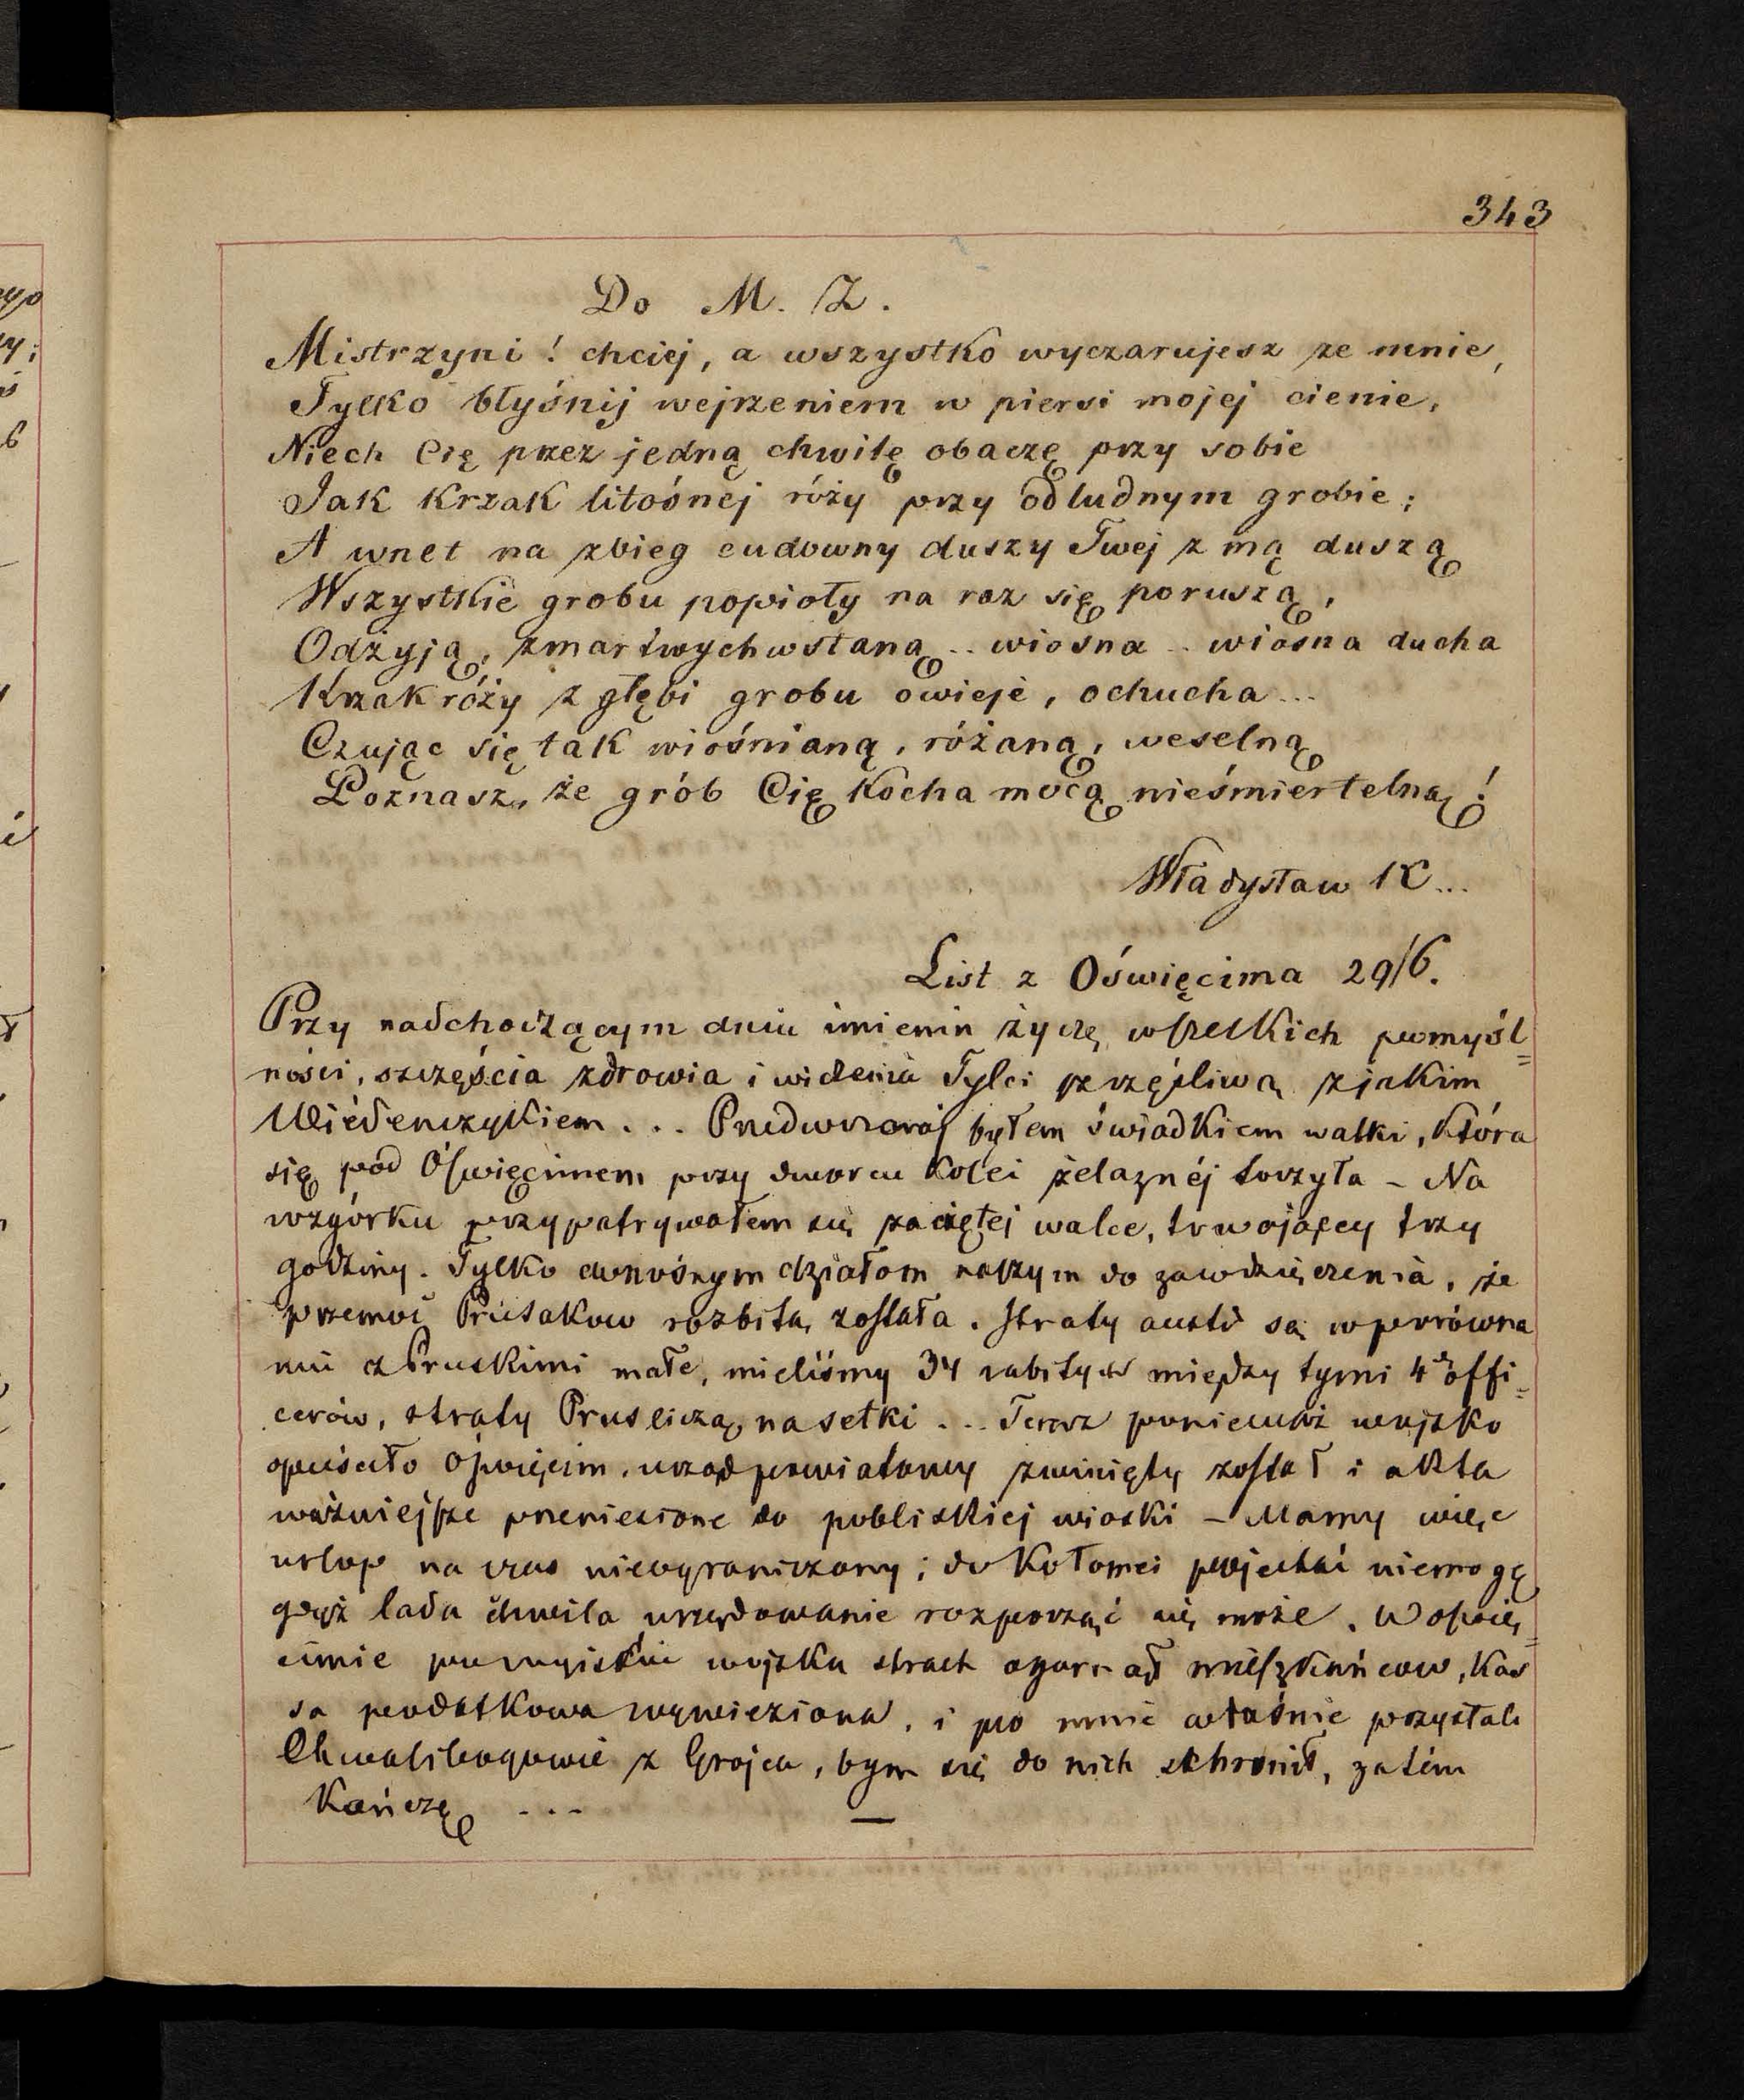 343
Do M. Z.
Mistrzyni! chciej, a wszystko wyczarujesz ze mnie,
Tylko błyśnij wejrzeniem w piersi mojej cienie,
Niech Cię przez jedną chwilę obaczę przy sobie
Jak krzak litośnej róży przy odludnym grobie;
A wnet na zbieg cudowny duszy Twej z mą duszą
Wszystkie grobu popioły na raz się poruszą,
Odżyją, zmartwychwstaną .. wiosna .. wiosna ducha
Krzak róży z głębi grobu owieje, ochucha...
Czując się tak wiośnianą, różaną, weselną
Poznasz, że grób Cię kocha mocą nieśmiertelną!
Władysław K...
List z Oświęcima 29/6.
Przy nadchodzącym dniu imienin życzę wszelkich pomyśl=
ności, szczęścia zdrowia i widzenia Tylci szczęśliwą z jakim
Wiedeńczykiem... Przedwczoraj byłem świadkiem walki, która
się pod Oświęcimem przy dworcu kolei żelaznéj toczyła – Na
wzgórku przypatrywałem się zaciętej walce, trwającey trzy
godziny. Tylko donośnym działom naszym do zawdzięczenia, że
przemoc Prusakow rozbitą została. Straty austr są w porówna
niu z Pruskimi małe, mieliśmy 34 zabitych między tymi 4 offi=
cerów, straty Prus liczą na setki... Teraz ponieważ wojsko
opuściło Oświęcim, urząd powiatowy zwinięty został i akta
ważniejsze przeniesione do pobliskiej wioski – Mamy więc
urlop na czas nieograniczony; do Kołomei pojechać niemogę
gdyż lada chwila urzędowanie rozpocząć się może. W Oświę=
cimie po wyjściu wojska strach ogarnął mieszkańcow, kas
sa podatkowa wywieziona, i po mnie właśnie przysłali
Chwalibogowie z Grojca, bym się do nich schronił, zatém
kończę ... —